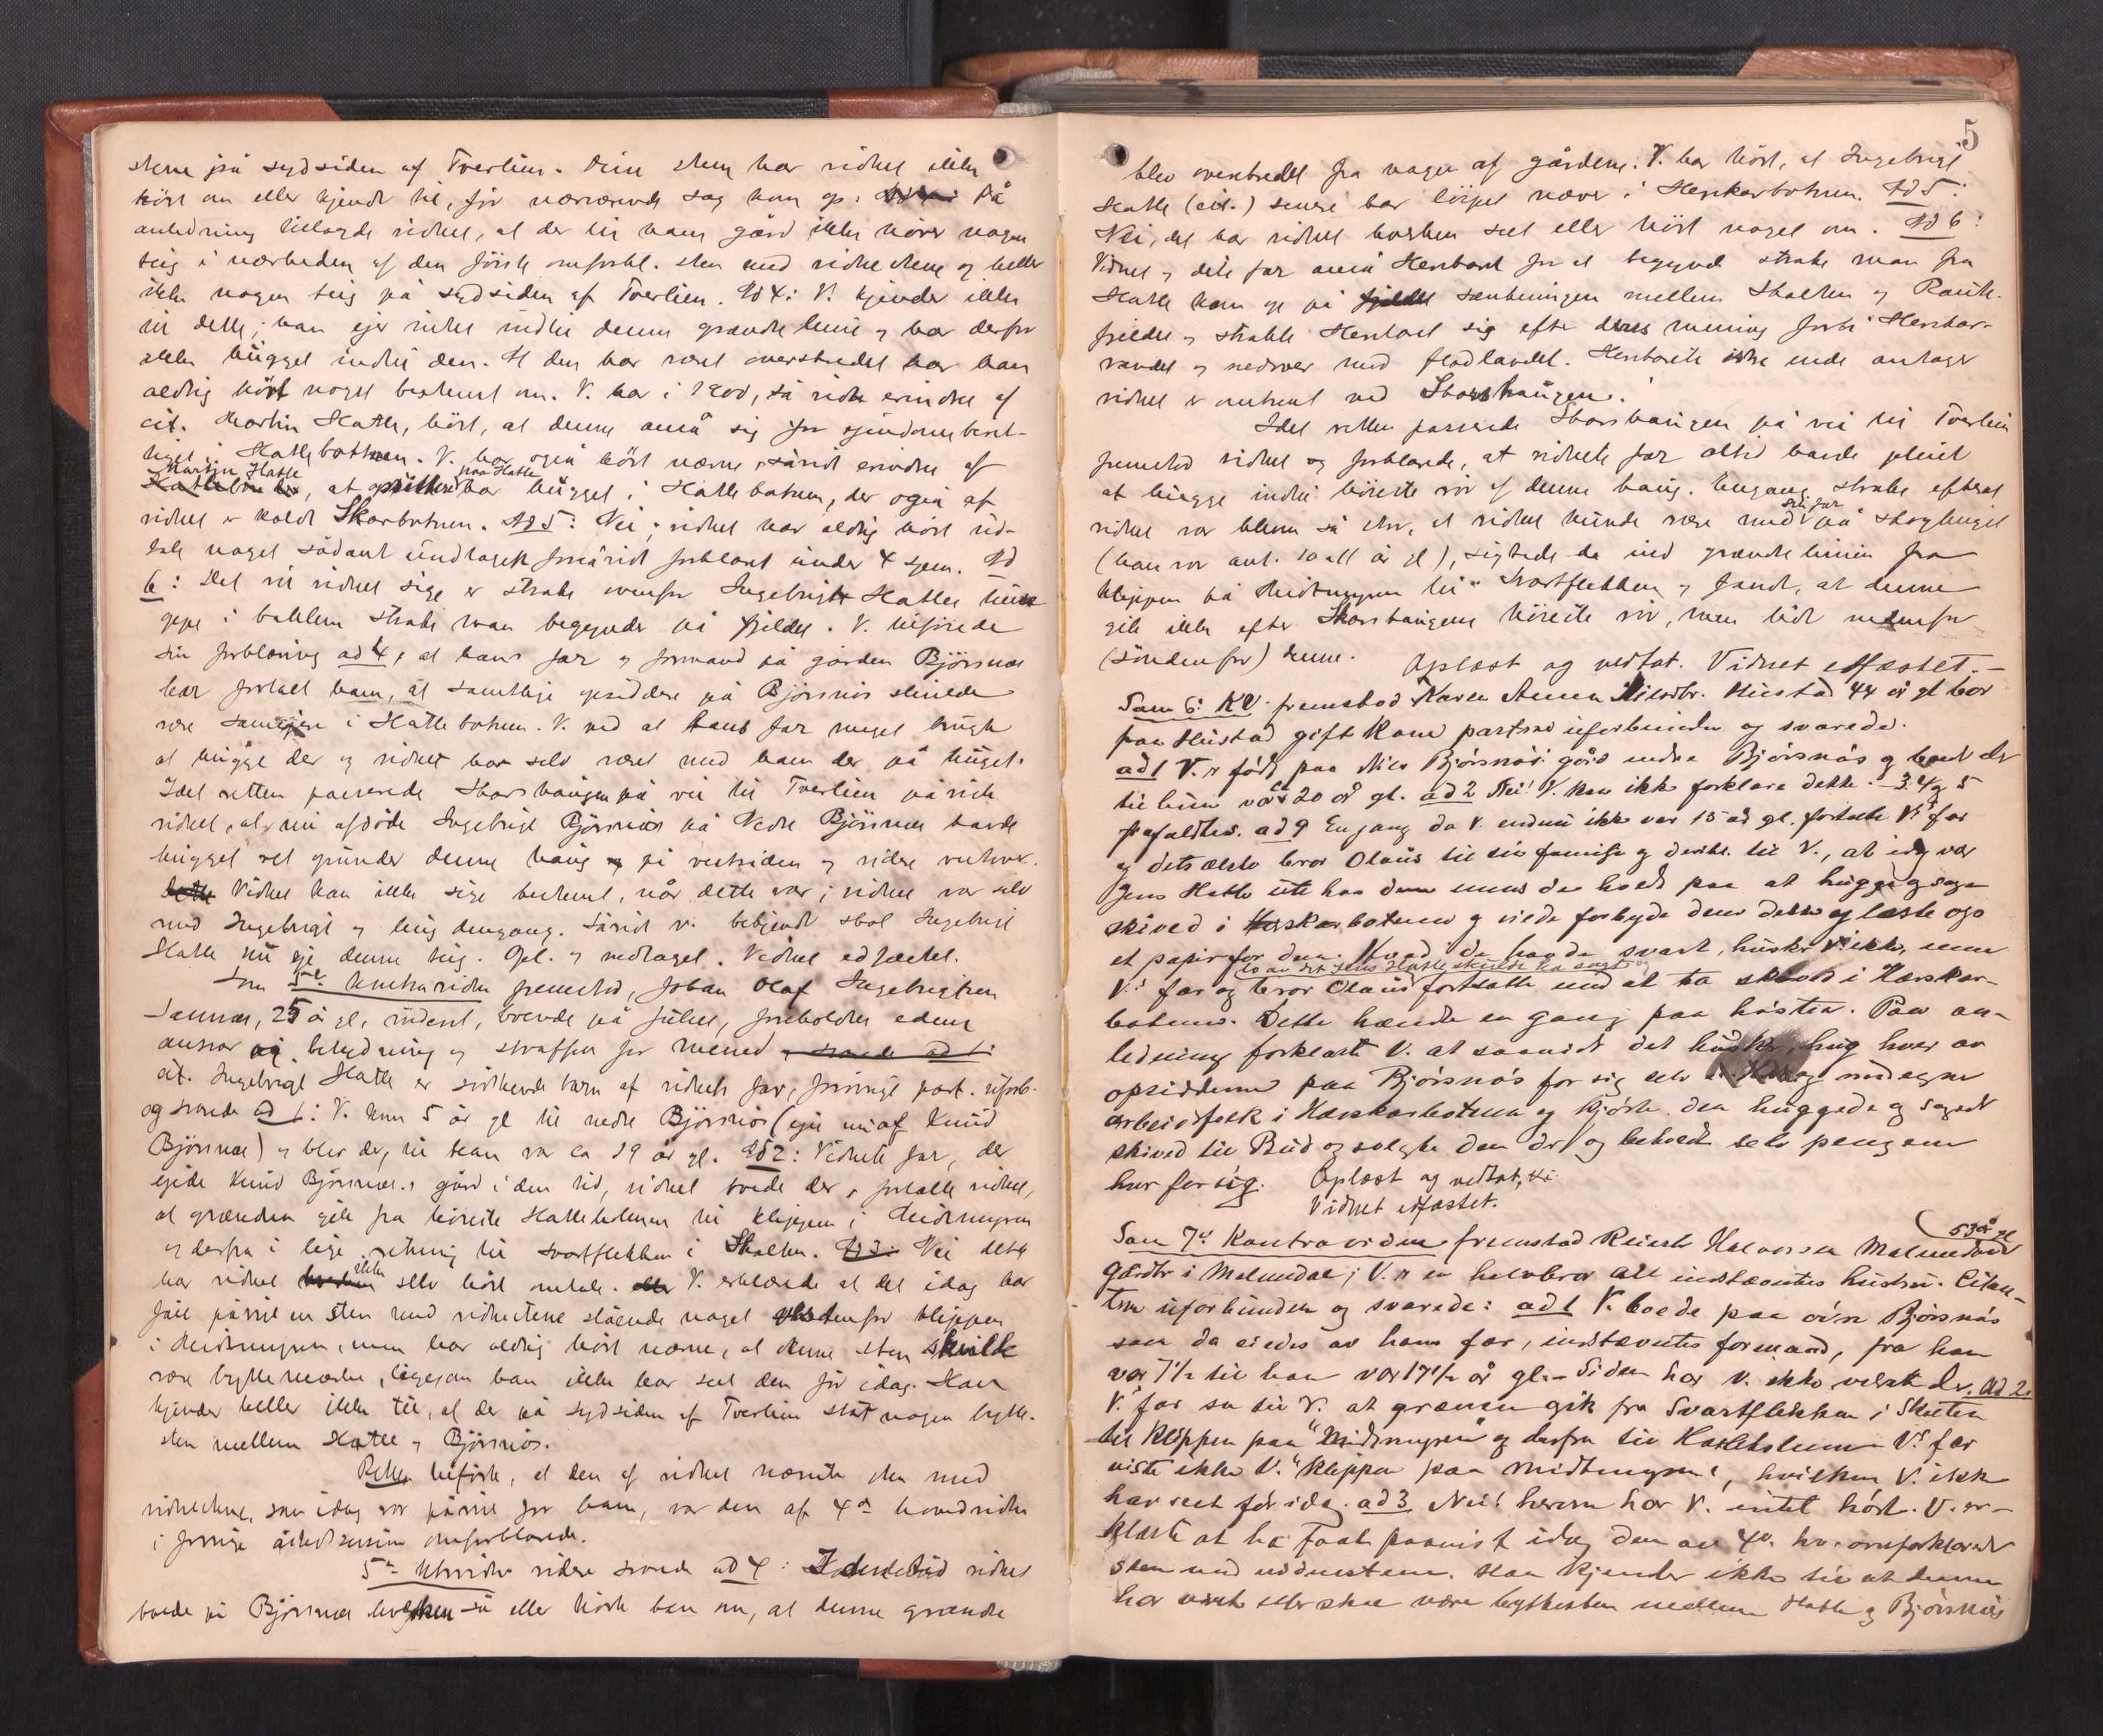 stene på sydsiden af Tverlien. Disse stene har vidnet ikke
hört om eller kjendt til, för nærværende sag kom op. På
anledning tillagde vidnet, at der til hans gård ikke hörer nogen
teig i nærheden af den förste omforkl. sten med vidnestene og heller
ikke nogen teig på sydsiden af Tverlien. Ad 4: V. kjender ikke
til dette; han ejer intet indtil denne grændselinie og har derfor
ikke hügget indtil den. At den har været overskredet har han
aldrig hört noget bestemt om. V. har i 1900, så vidt erindres af
cit. Martin Hatle, hört, at denne anså sig for ejendomsberet-
tiget i Hattebotnen. V. har også hört nævne, såvidt erindres af
Martin Hatle paa Hatle
, at opsidderne har hügget i Hattebotnen, der også af
vidnet er kaldt Skarbotnen. Ad 5: Nei; vidnet har aldrig hört üd-
tale noget sådant ündtagen forsåvidt forklaret ünder 4 spm. Ad
6: Det vil vidnet sige er straks ovenfor Ingebrigt Hatles
i bakken straks man begynder på fjeldet. V. tilföiede
sin forklaring ad 4, at hans far og formand på gården Björsnös
har fortalt ham, at samtlige opsiddere på Björsnös skülde
være sameiere i Hattebotnen. V. ved at hans far meget brügte
at hügge der og vidnet har selv været med ham der på hüget.
Idet retten passerede Skarshaugen på vei til Tverlien påviste
vidnet, at nü afdöde Ingebrigt Björsnös på Nedre Björsnös havde
hügget ret günder denne haüg på vestsiden og videre vestover.
Vidnet kan ikke sige bestemt, når dette var; vidnet var selv
med Ingebrigt og hüg dengang. Såvidt v. bekjendt skal Ingebrigt
Hatle nü eje denne teig. Opl. og vedtaget. Vidnet edfæstet.
Som 5te kontravidne fremstod, Johan Olaf Ingebrigtsen
25 år gl., üdent, boende på Jülset, foreholdtes edens
ansvar og betydning og straffen for mened
cit. Ingebrigt Hatle er södskendebarn af vidnets far, forövrigt part. üforb.
og svarede ad 1: V. kom 5 år gl. til nedre Björsnös (ejes nü af Knüd
Björsnös) og blev der, til han var ca 19 år gl. Ad 2: Vidnets far, der
ejede Knüd Björsnös's gård i den tid, vidnet boede der, fortalte vidnet,
at grændsen gik fra höieste Hatleholmen til kleppen i Midtmyren
og derfra i lige retning til svartflekken i Skalten. Ad 3: Nei dette
ikke
har vidnet selv hört omtale. V. erklærede at det idag har
fået påvist en sten med vidnestene stående noget vestenfor kleppen
i Midtmyren, men har aldrig hört nævne, at denne sten skülde
være byttemærke, ligesom han ikke har seet den för idag. Han
kjender heller ikke til, at der på sydsiden af Tverlien står nogen bytte-
sten mellem Hatle og Björsnös.
Retten tilförte, at den af vidnet nævnte sten med
vidnestene, som idag var påvist for ham, var den af 4de hovedvidne
i forrige åstedssession omforklarede.
5te kontravidne videre svarede ad 4: I den tid vidnet
boede på Björsnös hverken så eller hörte han om, at denne grændse
5
blev overtrådt fra nogen af gårdene. V. har hört, at Ingebrigt
Hatle (cit.) senere har löipet næver i Heskarbotnen. Ad 5:
Nei, det har vidnet hverken seet eller hört noget om. Ad 6:
Vidnet og dets far anså Henbaret for at begynde straks man fra
Hatle kom op på sænkningen mellem Skalten og
fjeldet og strakte Henbaret sig efter deres mening forbi Heskar-
vandet og nedover mod fladlandet. Henbarets østre ende antager
vidnet er omtrent ved Skarshaugen.
Idet retten passerede Skarshaugen på vei til Tverlien
fremstod vidnet og forklarede, at vidnets far altid havde pleiet
at hügge indtil höieste rör af denne haug. Engang straks efterat
sin far
vidnet var bleven så stor, at vidnet künde være med på skoghüget
(han var ant. 10 all år gl), sigtede de ind grændselinien fra
kleppen på Midtmyren til Svartflekken og fandt, at denne
gik ikke efter Skarshaugens höieste rör, men lidt nedenfor
(söndenfor) denne. Oplæst og vedtat. Vidnet edfæstet.
Som 6: KV fremstod Karen Anna Hüstad 44 år gl bor
paa Hüstad gift kone partsne üforbünden og svarede.
ad 1 V. er född paa Nils Björsnös's gård nedre Björsnös og boede der
til hün var 20 år gl. ad 2 Nei! V. kan ikke forklare dette. 3. 4 og 5
frafaldtes. ad 9 Engang da V. endnü ikke var 15 år gl. fortalte V.s far
og dets ældste bror Olaüs til sin familje og derib. til V., at idag var
Jens Hatle üte hos dem mens de holdt paa at hügge og sage
skived i Heskarbotnen og vilde forbyde dem dette og læste ogs
et papir for dem. Hvad de havde svart, hüsker V. ikke, men
lo av det Jens Hatle skülde ha sagt og
V.s far og bror Olaüs fortsatte med at ta skived i Hæskar-
botnen. Dette hændte en gang paa hösten. Paa an-
ledning forklarte V. at saavidt det hüsker, hüg hver av
opsidderne paa Björsnös for sig selv og med egne
arbeidsfolk i Hæskarbotnen og kjörte den huggede og sagede
skived til Büd og solgte den der og beholdt selv pengene
hver for sig. Oplæst og vedtat,
Vidnet edfæstet.
53 år gl
Som 7de Kontravidne fremstod Reiert Halvorsen Malmedal
Gårdbr i Malmedal; V. er en halvbror til indstævntes hüstrü. Citan-
tene üforbünden og svarede: ad 1 V. boede paa övre Björsnös
som da eiedes av hans far, indstævntes formand, fra han
var 7½ til han var 17½ år gl. – Siden har V. ikke været der. Ad 2.
V.s far sa til V. at grænsen gik fra Svartflekken i Skalten
til Kleppen paa "Midtmyren" og derfra til Hatleholmen V.s far
viste ikke V. "kleppen paa Midtmyren", hvilken V. ikke
har seet för idag. ad 3 Nei! herom har V. intet hört. V. er-
klærte at ha faat paavist idag den av 4de hv. omforklarede
sten med vidnestene. Han kjender ikke til at denne
har været eller skal være byttesten mellem Hatle og Björsnös